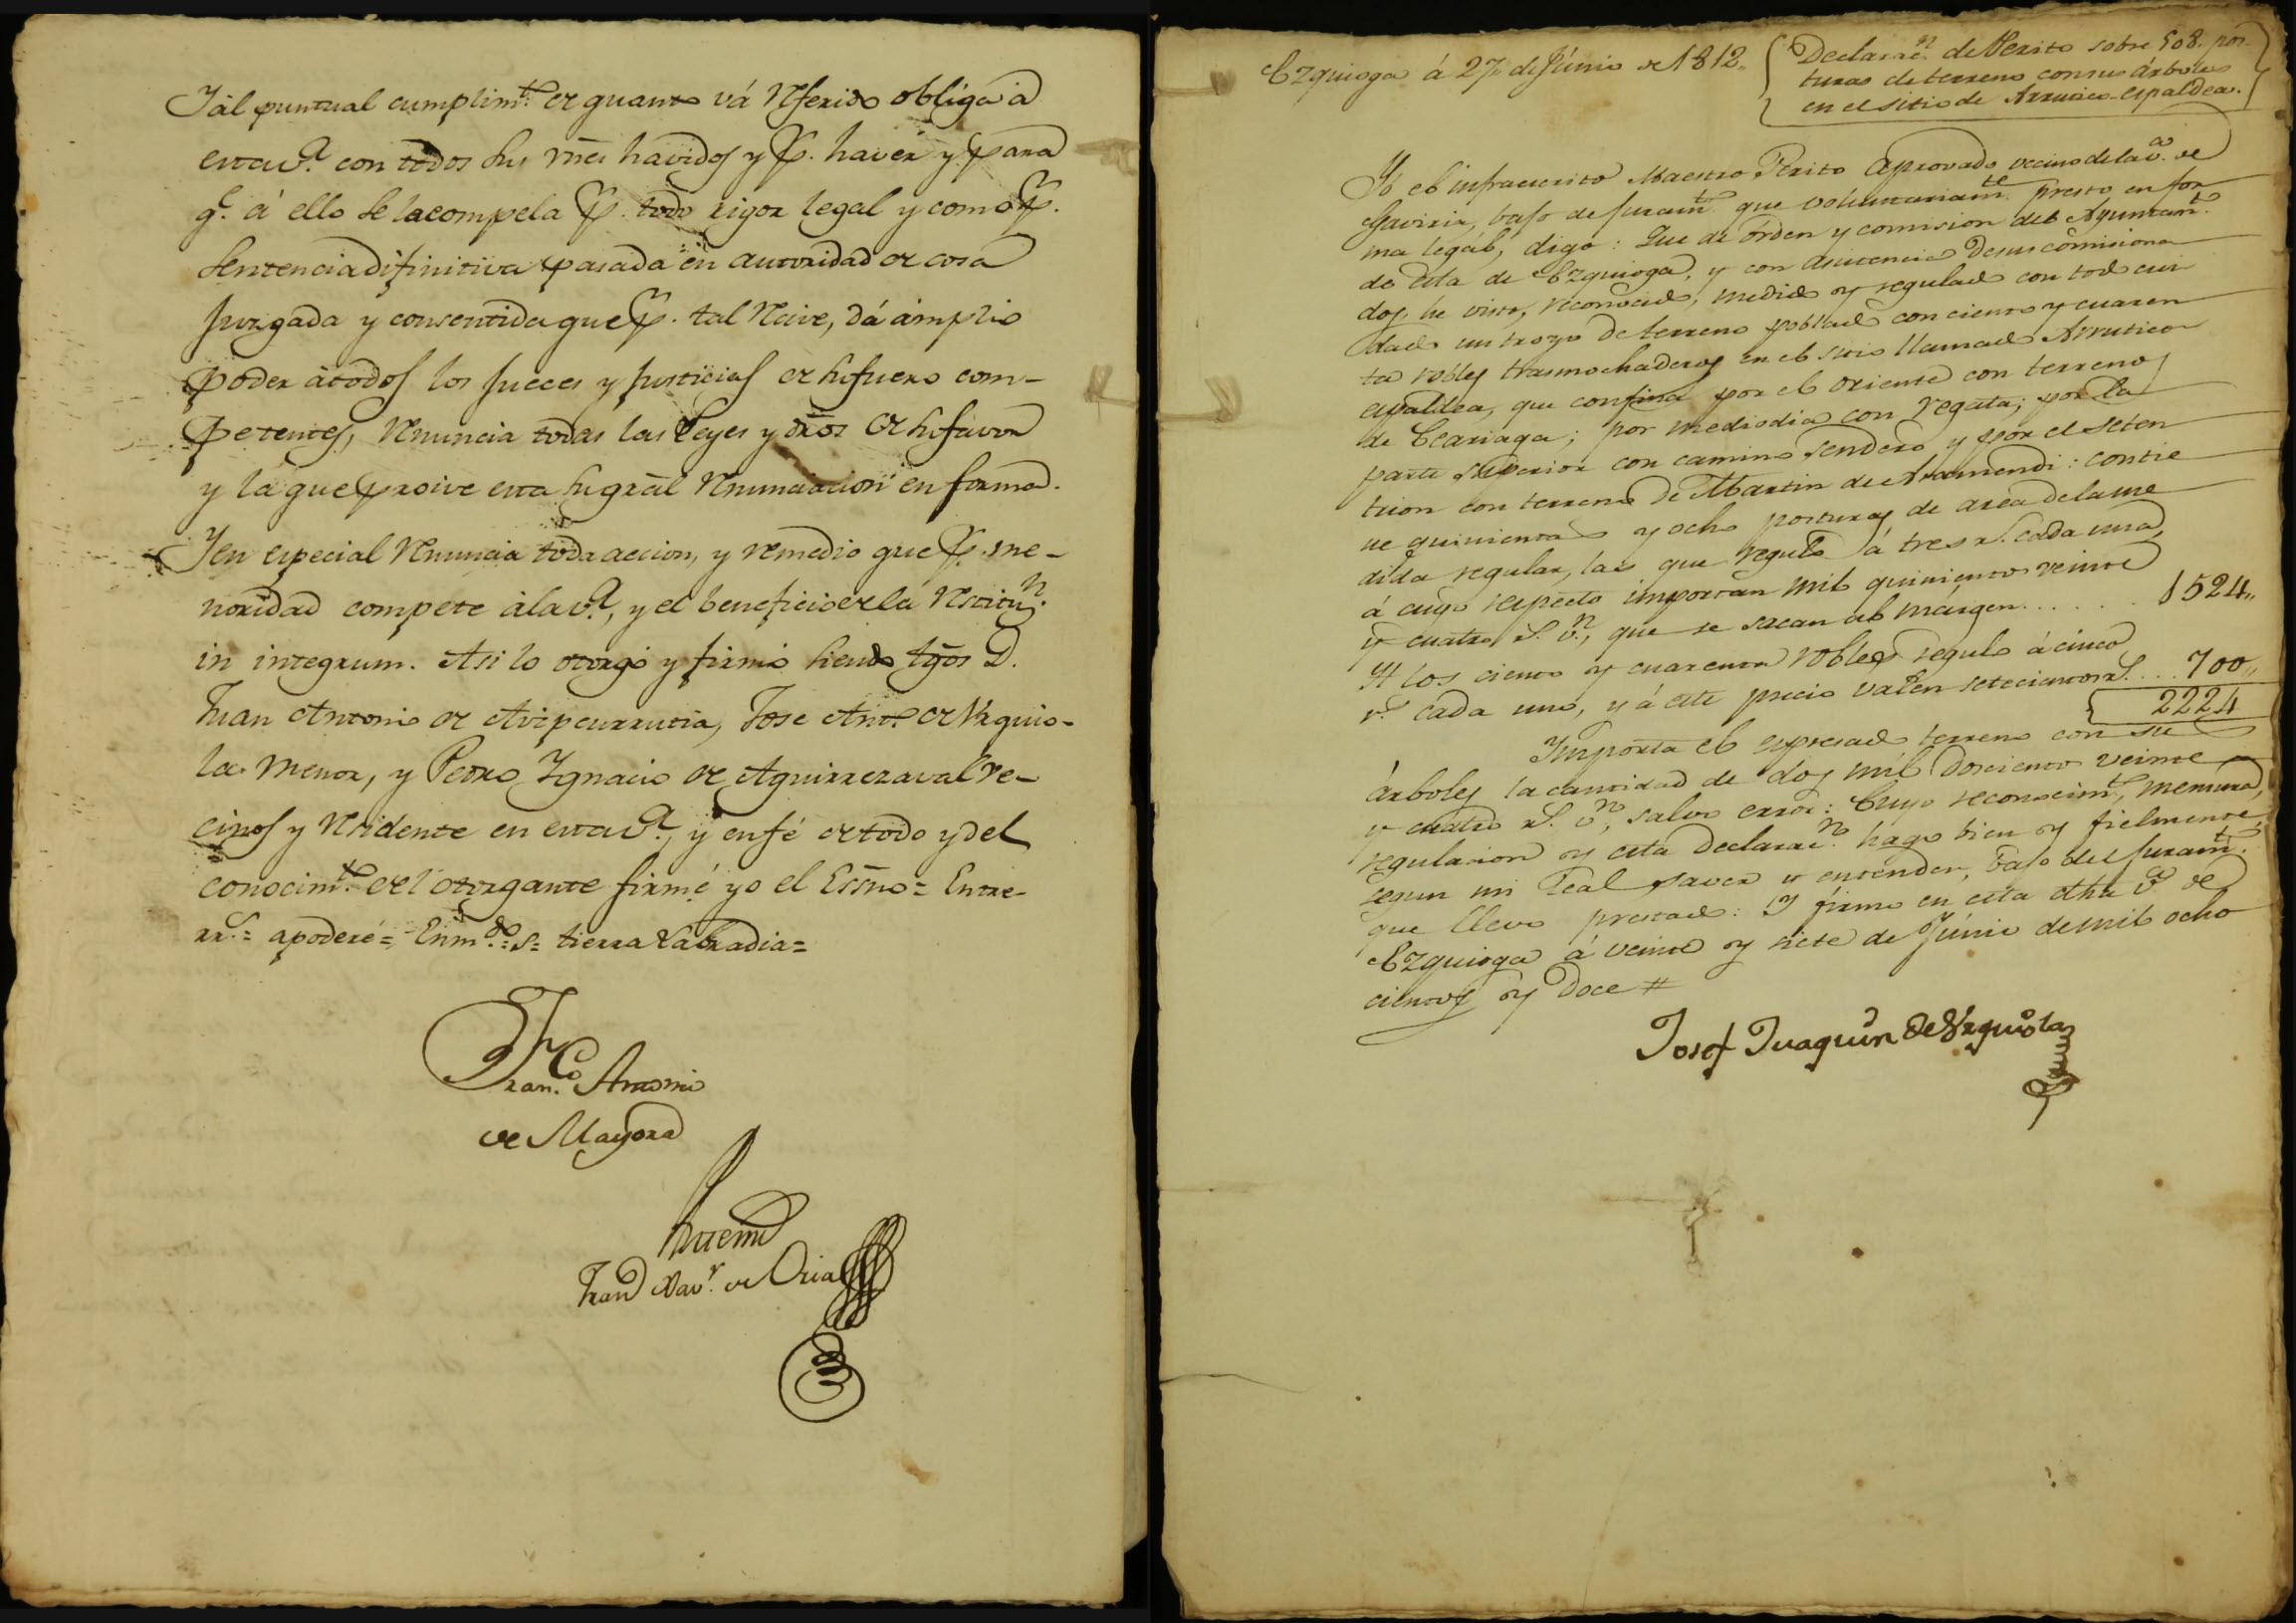 Y al puntual cumplim.to de quanto vá referido obliga á
esta v.a con todos sus vnes havidos y p. haver y para
q.e á ello se la compela p. todo rigor legal y como p.
Sentencia difinitiva pasada en autoridad de cosa
juzgada y consentida que p. tal recive, dá ámplio
poder á todos los Jueces y Justicias de su fuero com-
petentes, renuncia todas las Leyes y dros de su favor
y la que proive esta su gral renunciacion en forma.
Y en especial renuncia toda accion, y remedio que p. me-
noridad compete á la v.a, y el beneficio de la restitu.n
in integrum. Asi lo otorgó y firmó siendo tgos D.
Juan Antonio de Avipcurrutia, Jose Ant.o de Urquio-
la menor, y Pedro Ygnacio de Aguirrezaval ve-
cinos y residente en esta v.a, y en fé de todo y del
conocim.to del otorgante firmé yo el Essno = Entre-
rr.s = apoderé = Enm.do = s = tierra Labradia =
Fran.co Antonio
de Mayora
Ante mi
Fran.co Xav.r de Oria
Ezquioga á 27,, de Júnio de 1812,,
Declarac.n de Perito sobre 508. pos-
turas de terreno con sus árboles
en el sitio de Arrutico-espaldea.
Yo el infraescrito Maestro Perito Aprovado vecino de la v.a de
Gaviria, bajo de juram.to que voluntariam.te presto en for
ma legál, digo: Que de órden y comision del Ayuntam.to
de esta de Ezquioga, y con asistencia de sus comisiona
dos, he visto, reconocido, medido y regulado con todo cui
dado un trozo de terreno poblado con ciento y cuaren
ta robles trasmochaderos en el sitio llamado Arrutico
espaldea, que confina por el oriente con terrenos
de Eeariaga; por mediodia con regata; por la
parte superior con camino sendero y por el seten
trion con terreno de Martin de Aramendi: contie
ne quinientas y ocho posturas de area de la me
dida regular, las que regulo á tres r.s cada una,
á cuyo respecto importan mil quinientos veinte
y cuatro r.s v.n, que se sacan al márgen . . . . . . 1524,,
Y los ciento y cuarenta robles regulo á cinco
r.s cada uno, y á este precio valen setecientos r.s . . . 700,,
2224
Importa el espresado terreno con sus
árboles la cantidad de dos mil doscientos veinte
y cuatro r.s v.n, salvo error: Cuyo reconocim.to, mensura,
regulacion y esta Declarac.n hago bien y fielmente
segun mi leal saver y entender, bajo del juram.to
que llevo prestado: Y firmo en esta dha v.a de
Ezquioga á veinte y siete de Júnio de mil ocho
cientos y doce #
Josef Juaquin de Urquiola